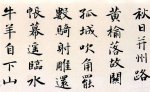 秋日并州路
黃榆落故關
孤城吹角罷
數騎射雕還
帳幕遙臨水
牛羊自下山